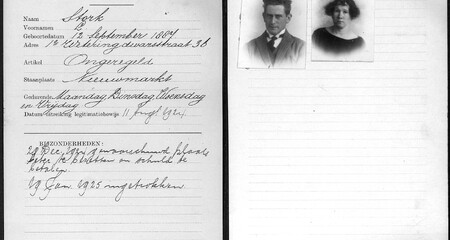 Naam Stork
Voornamen E
Geboortedatum 12 September 1887
Adres 1e Ketteringdwarsstraat 36
Artikel Ongeregeld
Staanplaats Nieuwmarkt
Gedurende Maandag, Dinsdag, Woensdag
en Vrijdag
Datum uitreiking legitimatiebewijs 11 1924
BIJZONDERHEDEN:
29 Dec. 1924 gewaarschuwd plaats
beter te bezetten en schuld te
betalen
19 Jan. 1925 ingetrokken.